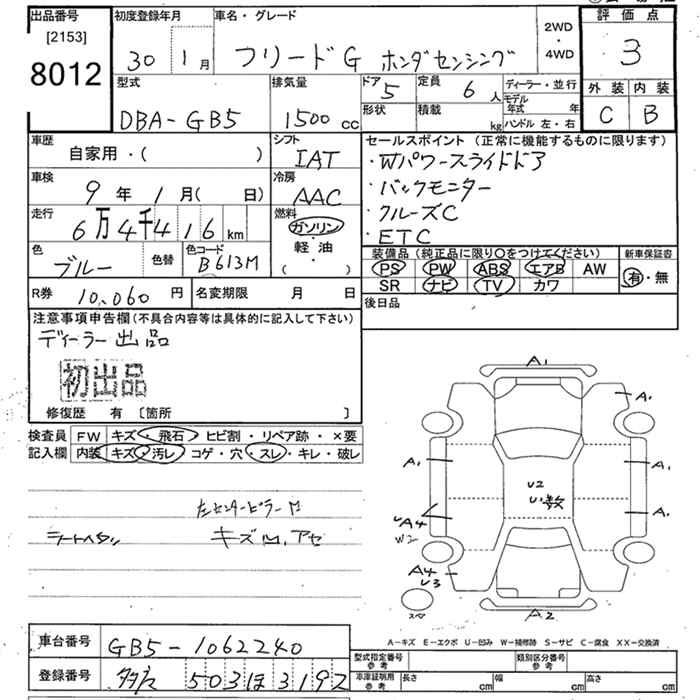 出品番号 初度登録年月 車名・グレード 2WD・4WD 評価点
[2153]
8012 30 1月 フリードG ホンダセンシング 3
型式 排気量 ドア 5 定員 6人 ディーラー・並行 外装 内装
DBA-GB5 1500cc 形状 積載 kg モデル年式 年 C B
ハンドル 左・右
車歴 シフト セールスポイント(正常に機能するものに限ります)
自家用・( ) IAT ・Wパワースライドドア
車検 冷房 ・バックモニター
9年 1月( 日) AAC ・クルーズC
走行 燃料 ・ETC
6万4千416km ガソリン
軽油
( ・ )
色 色替 色コード 装備品(純正品に限り○をつけてください) 新車保証書
ブルー B613M PS PW ABS エアB AW 有・無
SR ナビ TV カワ
R券 10,060円 名変期限 月 日 後日品
注意事項申告欄(不具合内容等は具体的に記入して下さい)
ディーラー出品
初出品
修復歴 有 〔箇所 〕
検査員 FW キズ・飛石・ヒビ割・リペア跡・×要
記入欄 内装 キズ・汚レ・コゲ・穴・スレ・キレ・破レ
左センターピラー
キズ
A1
A1
A1
A1
U2
U1数
A1
A4
W2
A4
U3
A2
A-キズ E-エクボ U-凹み W-補修跡 S-サビ C-腐食 XX-交換済
車台番号 GB5-1062240
登録番号 503ほ3192
型式指定番号 参考 類別区分番号 参考
車庫証明用 参考 長さ cm 幅 cm 高さ cm